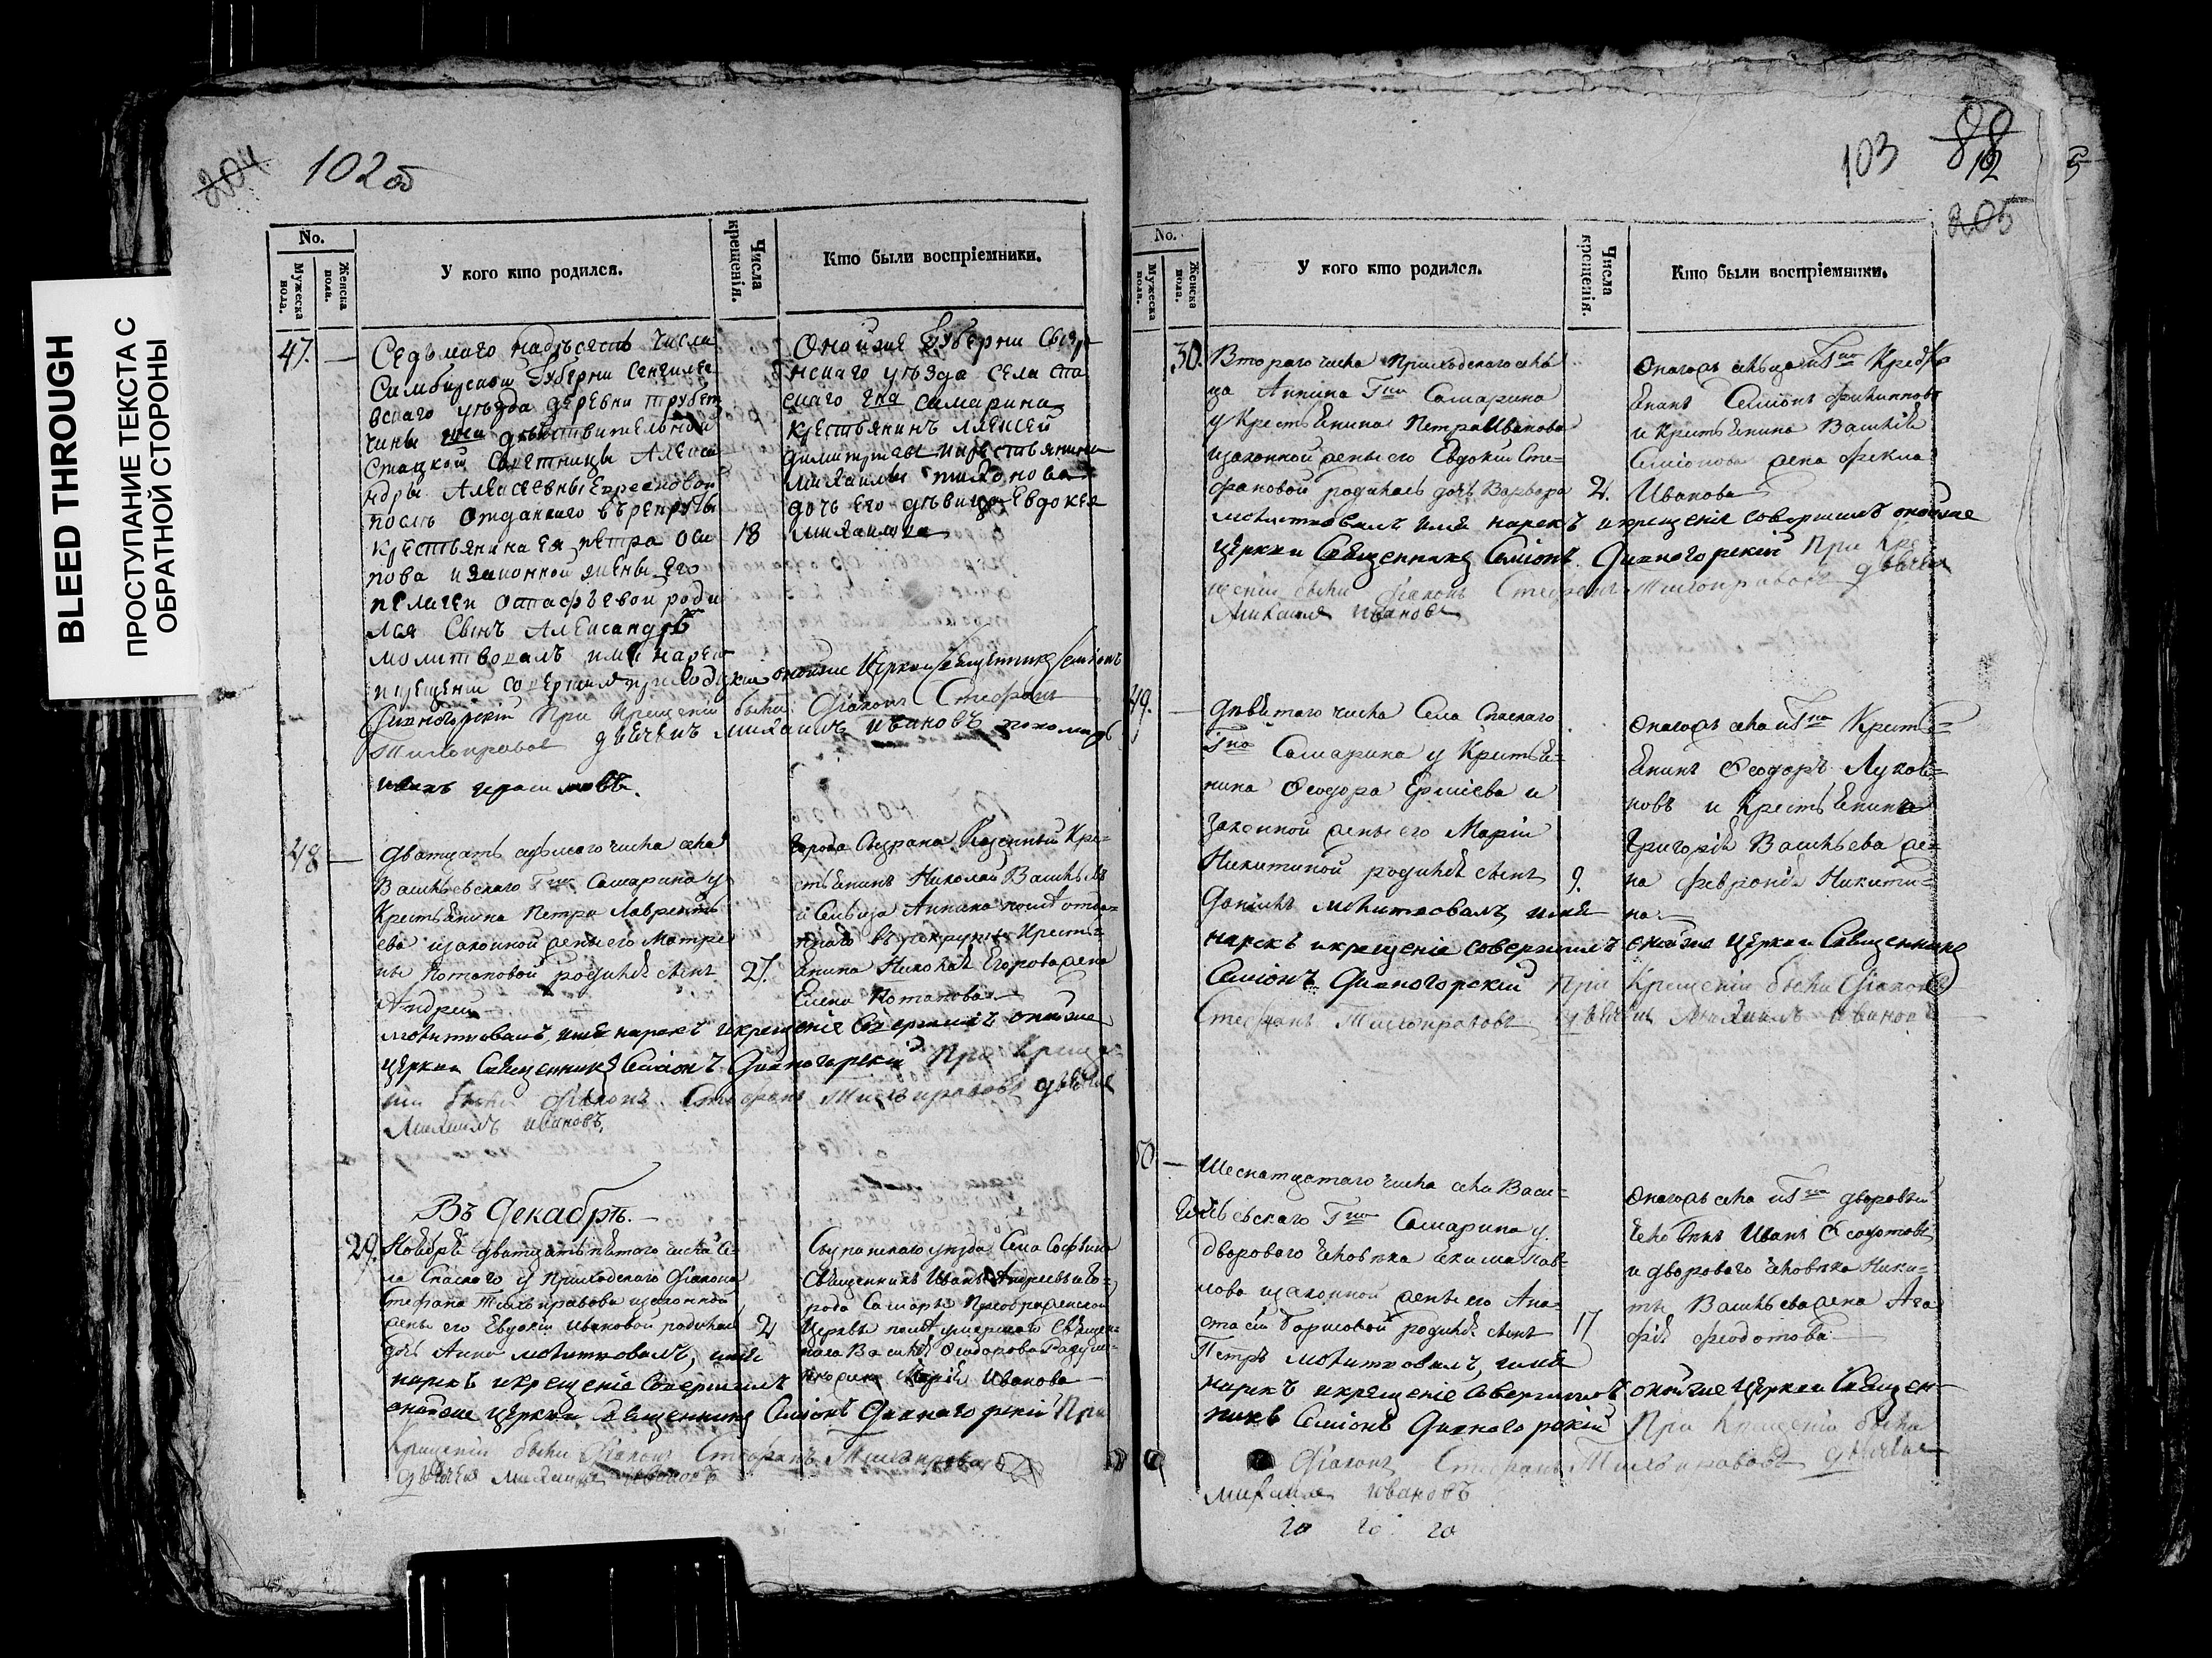 BLEED THROUGH
ПРОСТУПАНИЕ ТЕКСТА С
ОБРАТНОЙ СТОРОНЫ
204
102 об
No.
Мужеска пола.
Женска пола.
У кого кто родился.
Числа крещенія.
Кто были воспріемники.
47.
Седьмаго надесять числа
Симбирской Губерни Сенгилее
вскаго уѣзда деревни Трубет
чины действительной
Стацкой Советницы Алекса
ндры Алексеевны
после отданнаго в рекруты
крестьянина ея петра оси
пова и законной жены его
пелагеи остафьевой роди
лся сынъ Александръ
молитвовалъ имя нарекъ
и крещеніи совершилъ приходскіи онойже Церкви священникъ Семіонъ
Дивногорскіи При крещеніи были Діаконъ Стефанъ
Тихонравовъ дьячекъ михаилъ ивановъ пономарь
иванъ герасимовъ.
18
Онойже Губерни Сызра
нскаго уѣзда села спа
скаго самарина
крестьянинъ Алексей
димитріевъ и крестьянина
михаилы тихонова
дочь его девица Евдокея
михаилова
48
дватцать седьмого числа села
Васильевскаго Гна Самарина у
Крестьянина Петра Лавренть
ева изаконной жены его Матре
ны Потаповой родился сынъ
Андрей
молитвовалъ имя нарекъ и крещеніе совершилъ онойже
церкви Священникъ Семіонъ Дивногорскій При креще
ніи были Діаконъ Стефанъ Тихонравовъ дьячекъ
Михаилъ ивановъ.
27.
города Сызрана Казенный Кре=
стьянинъ Николай Васильевъ
и Сельца Аннина послѣ отдан=
наго в рекруты Кресть=
янина Николая Егорова жена
Елена Потапова
Въ Декабрѣ.
29.
Ноября дватцать пятого числа Се=
ла Спаского у Приходскаго Діакона
Стефана Тихонравова изаконной
жены его Евдокіи Ивановой родилась
дочь Анна молитвовалъ, имя
нарекъ и крещеніе совершилъ
онойже церкви священникъ Семіонъ Дивногорскій При
Крещеніи были Діаконъ Стефанъ Тихонравовъ
дьячекъ михаилъ ивановъ
2
Сызранскаго уезда Села
Священникъ Иванъ Андреевъ и го=
рода Самары Преображенской
Церкви послѣ умершаго Священ=
ника Василья Феодорова
Марія Иванова
103
88
102
205
No.
Мужеска пола.
Женска пола.
У кого кто родился.
Числа крещенія.
Кто были воспріемники.
30.
Втораго числа Приходскаго сель
ца Аннина Гна Самарина
у Крестьянина Петра Иванова
изаконной жены его Евдокіи Сте=
фановой родилась дочь Варвара
молитвовалъ имя нарекъ и крещеніе совершилъ онойже
церкви Священникъ Семіонъ Дивногорскій При Кре
щеніи были Діаконъ Стефанъ Тихонравовъ дьячекъ
Михаилъ Ивановъ
2.
Онагожъ сельца и Гна Кресть
янинъ Семіонъ Филипповъ
и Крестьянина Василія
Семіонова жена Фекла
Иванова
49.
девятаго числа Села Спаскаго
Гна Самарина у Крестья=
нина Феодора Ермиева и
законной жены его Маріи
Никитиной родился сынъ
Даніилъ молитвовалъ имя
нарекъ и крещеніе совершилъ онойже церкви Священникъ
Семіонъ Дивногорскій При Крещеніи были Діаконъ
Стефанъ Тихонравовъ дьячекъ Михаилъ Ивановъ
9.
Онагожъ села и Гна Кресть=
янинъ Феодоръ Лукоя=
новъ и Крестьянина
Григорія Васильева же=
на Февронія Никити=
на
50.
Шеснатцатаго числа села Васи=
льевскаго Гна Самарина у
дворового человека Екима Пав=
лова изаконной жены его Ана=
стасіи Борисовой родился сынъ
Петръ молитвовалъ, имя
нарекъ и крещеніе совершилъ онойже церкви Священ=
никъ Семіонъ Дивногорскій При Крещеніи были
Діаконъ Стефанъ Тихонравовъ дьячекъ
михаилъ ивановъ
17
Онагожъ села и Гна дворовый
человекъ Иванъ Феодотовъ
и дворового человека Ники=
ты Васильева жена Ага
фія Феодотова